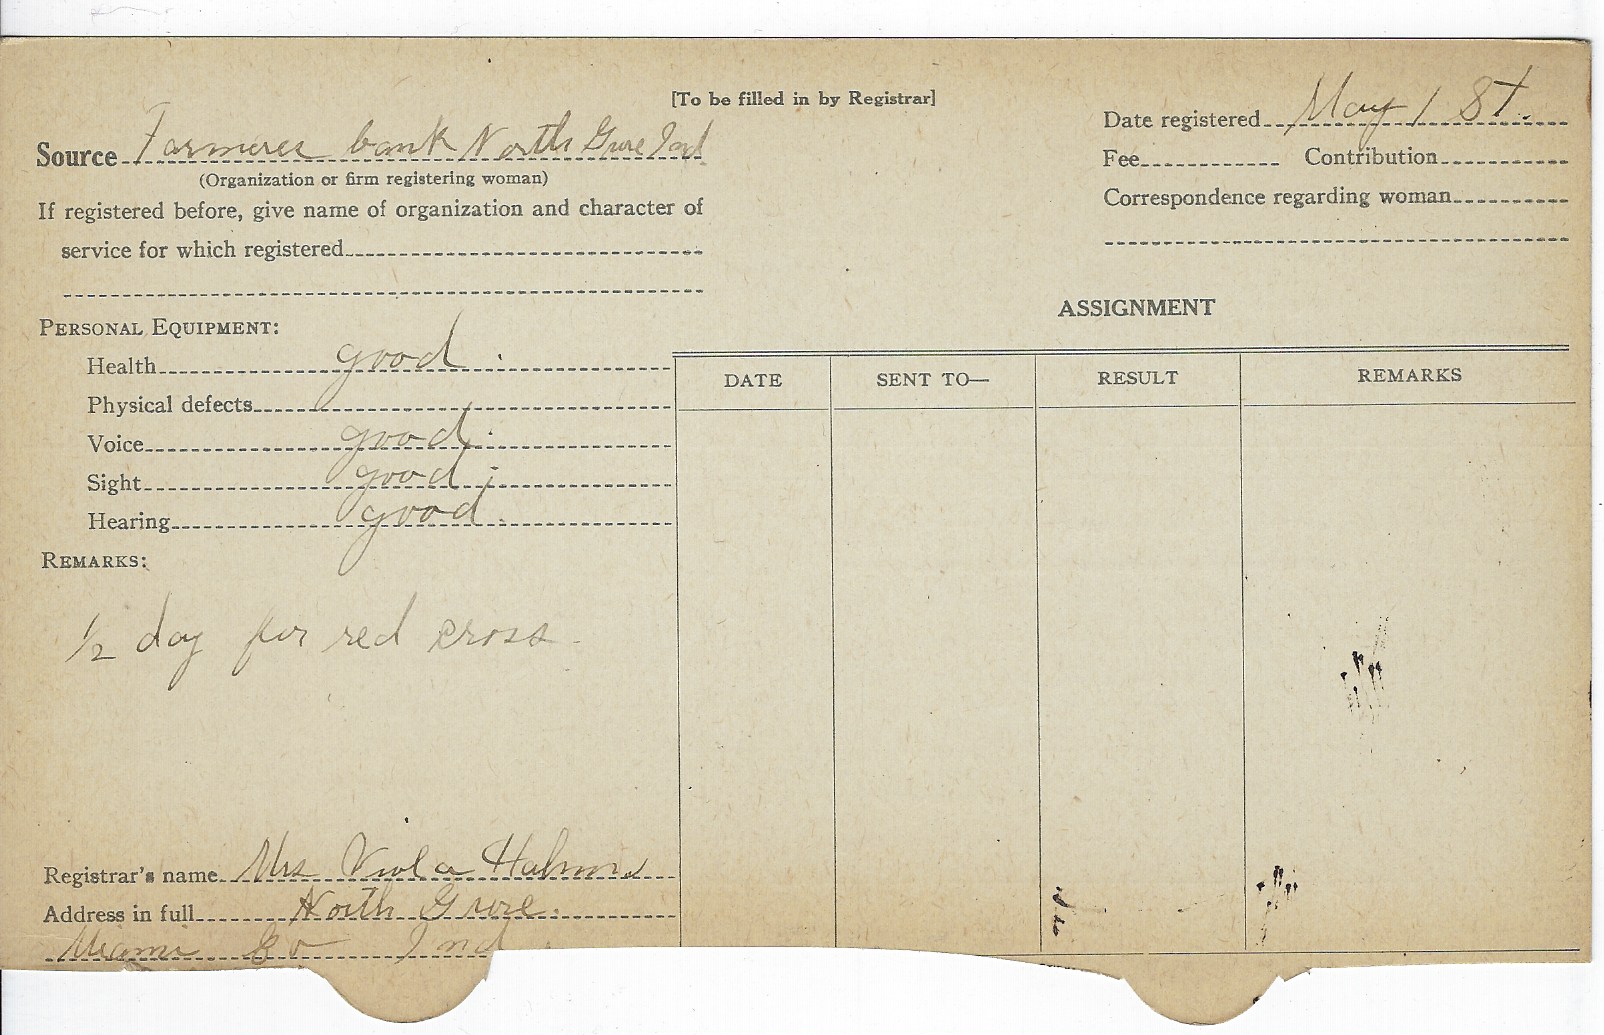 [To be filled in by Registrar]
Date registered May 1 St.
Source Farmers bank North Grove Ind
(Organization or firm registering woman)
Fee Contribution
If registered before, give name of organization and character of
Correspondence regarding woman
service for which registered
ASSIGNMENT
PERSONAL EQUIPMENT:
Health good.
DATE SENT TO— RESULT REMARKS
Physical defects
Voice good.
Sight good.
Hearing good.
REMARKS:
1/2 day for red cross
Registrar's name Mrs Viola
Address in full North Grove.
Miami Co Ind